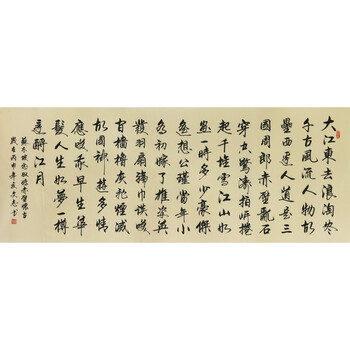 大江東去浪淘尽
千古風流人物故
壘西邊人道是三
國周郎赤壁亂石
穿空驚濤拍岸捲
起千堆雪江山如
畫一時多少豪傑
遙想公瑾當年小
喬初嫁了雄姿英
發羽扇綸巾談笑
間檣櫓灰飛煙滅
故國神遊多情
應笑我早生華
髮人生如夢一樽
還酹江月
蘇東坡念奴嬌赤壁懷古
歲在丙申年書